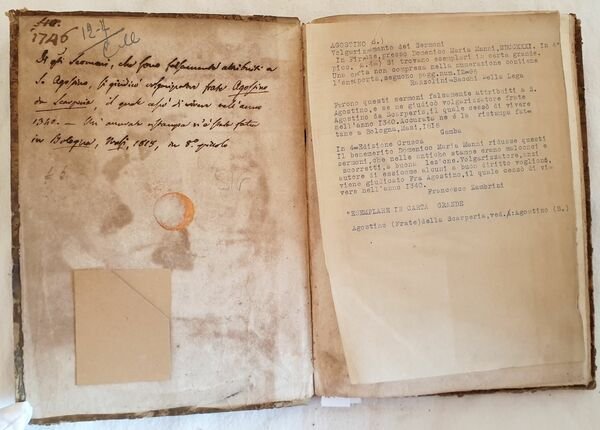 1746
12-4
Coll
Di qti Sermoni, che sono falsamente attribuiti a
S. Agostino, si giudicò volgarizzatore frate Agostino
da Scarperia, il quale cessò di vivere nell'anno
1340. — Un' accurata ristampa n'è stata fatta
in Bologna, Masi, 1818, in 8° piccolo
AGOSTINO S.)
Volgarizzamento dei Sermoni
In Firenze, presso Domenico Maria Manni, MDCCXXXI. In 4°
pico. Si trovano esemplari in carta grande.
Una carta non compresa nella numerazione contiene
l'antiporta, seguono pagg.num.
Razzolini-Bacchi Della Lega
Furono questi sermoni falsamente attribuiti a S.
Agostino, e se ne giudicò volgarizzatore frate
Agostino da Scarperia, il quale cessò di vivere
nell'anno 1340. Accurata ne è la ristampa fat-
tane a Bologna, Masi, 1818
Gamba
In 4° Edizione Crusca
Il benemerito Domenico Maria Manni ridusse questi
sermoni, che nelle antiche stampe erano malconci e
scorretti, a buona lezione. Volgarizzatore, anzi
autore di essi come alcuni a buon diritto vogliono,
viene giudicato Fra Agostino, il quale cessò di vi-
vere nell'anno 1340.
Francesco Zambrini
ESEMPLARE IN CARTA GRANDE
Agostino (Frate) della Scarperia, ved. A: Agostino (S.)